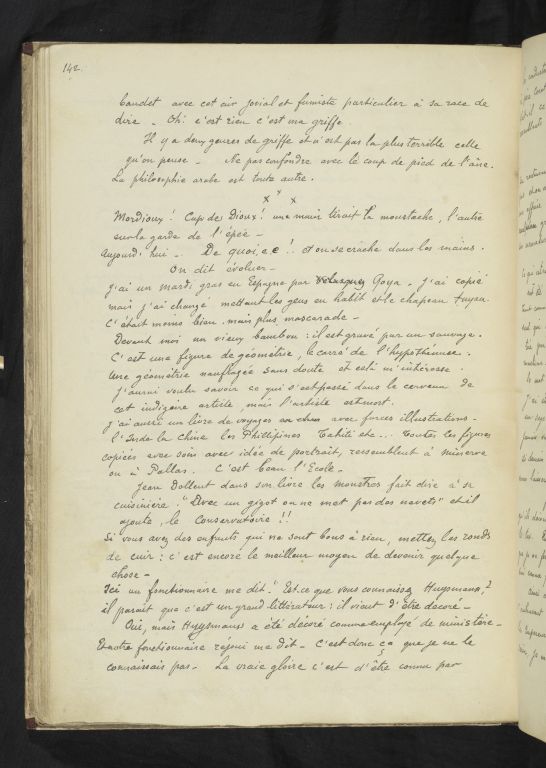 142.
baudet avec cet air jovial et fumiste particulier à sa race de
dire - Oh! c'est rien c'est ma griffe.
Il y a deux genres de griffe et n'est pas la plus terrible celle
qu'on pense - Ne pas confondre avec le coup de pied de l'âne.
La philosophie arabe est toute autre.
x x x
Mordioux! Cap de Dioux! une main tirait la moustache, l'autre
sur la garde de l'épée -
Aujourd'hui - De quoi, e e! et on se crache dans les mains.
On dit évoluer -
j'ai un mardi gras en Espagne par Velasquez Goya - j'ai copié
mais j'ai changé mettant les gens en habit et le chapeau tuyau.
C'était moins bien - mais plus mascarade -
Devant moi un vieux bambou: il est gravé par un sauvage.
C'est une figure de géométrie, le carré de l'hypothénuse.
Une géométrie naufragée sans doute et cela m'intéresse.
j'aurai voulu savoir ce qui s'est passé dans le cerveau de
cet indigène artiste, mais l'artiste est mort.
j'ai aussi un livre de voyages avec forces illustrations -
l'Inde la Chine les Phillipines Tahiti etc... toutes les figures
copiées avec soin avec idée de portrait, ressemblent à minerve
ou à Pallas. C'est beau l'Ecole -
Jean Dollent dans son livre les monstres fait dire à sa
cuisinière: "Avec un gigot on ne met pas des navets" et il
ajoute, le Conservatoire!!
Si vous avez des enfants qui ne sont bons à rien, mettez les ronds
de cuir: c'est encore le meilleur moyen de devenir quelque
chose -
Ici un fonctionnaire me dit: Est-ce que vous connaissez Huysmans?
il parait que c'est un grand littérateur: il vient d'être décoré -
Oui, mais Huysmans a été décoré comme employé de ministère -
Et notre fonctionnaire réjoui me dit - C'est donc ça que je ne le
connaissais pas - La vraie gloire c'est d'être connu par